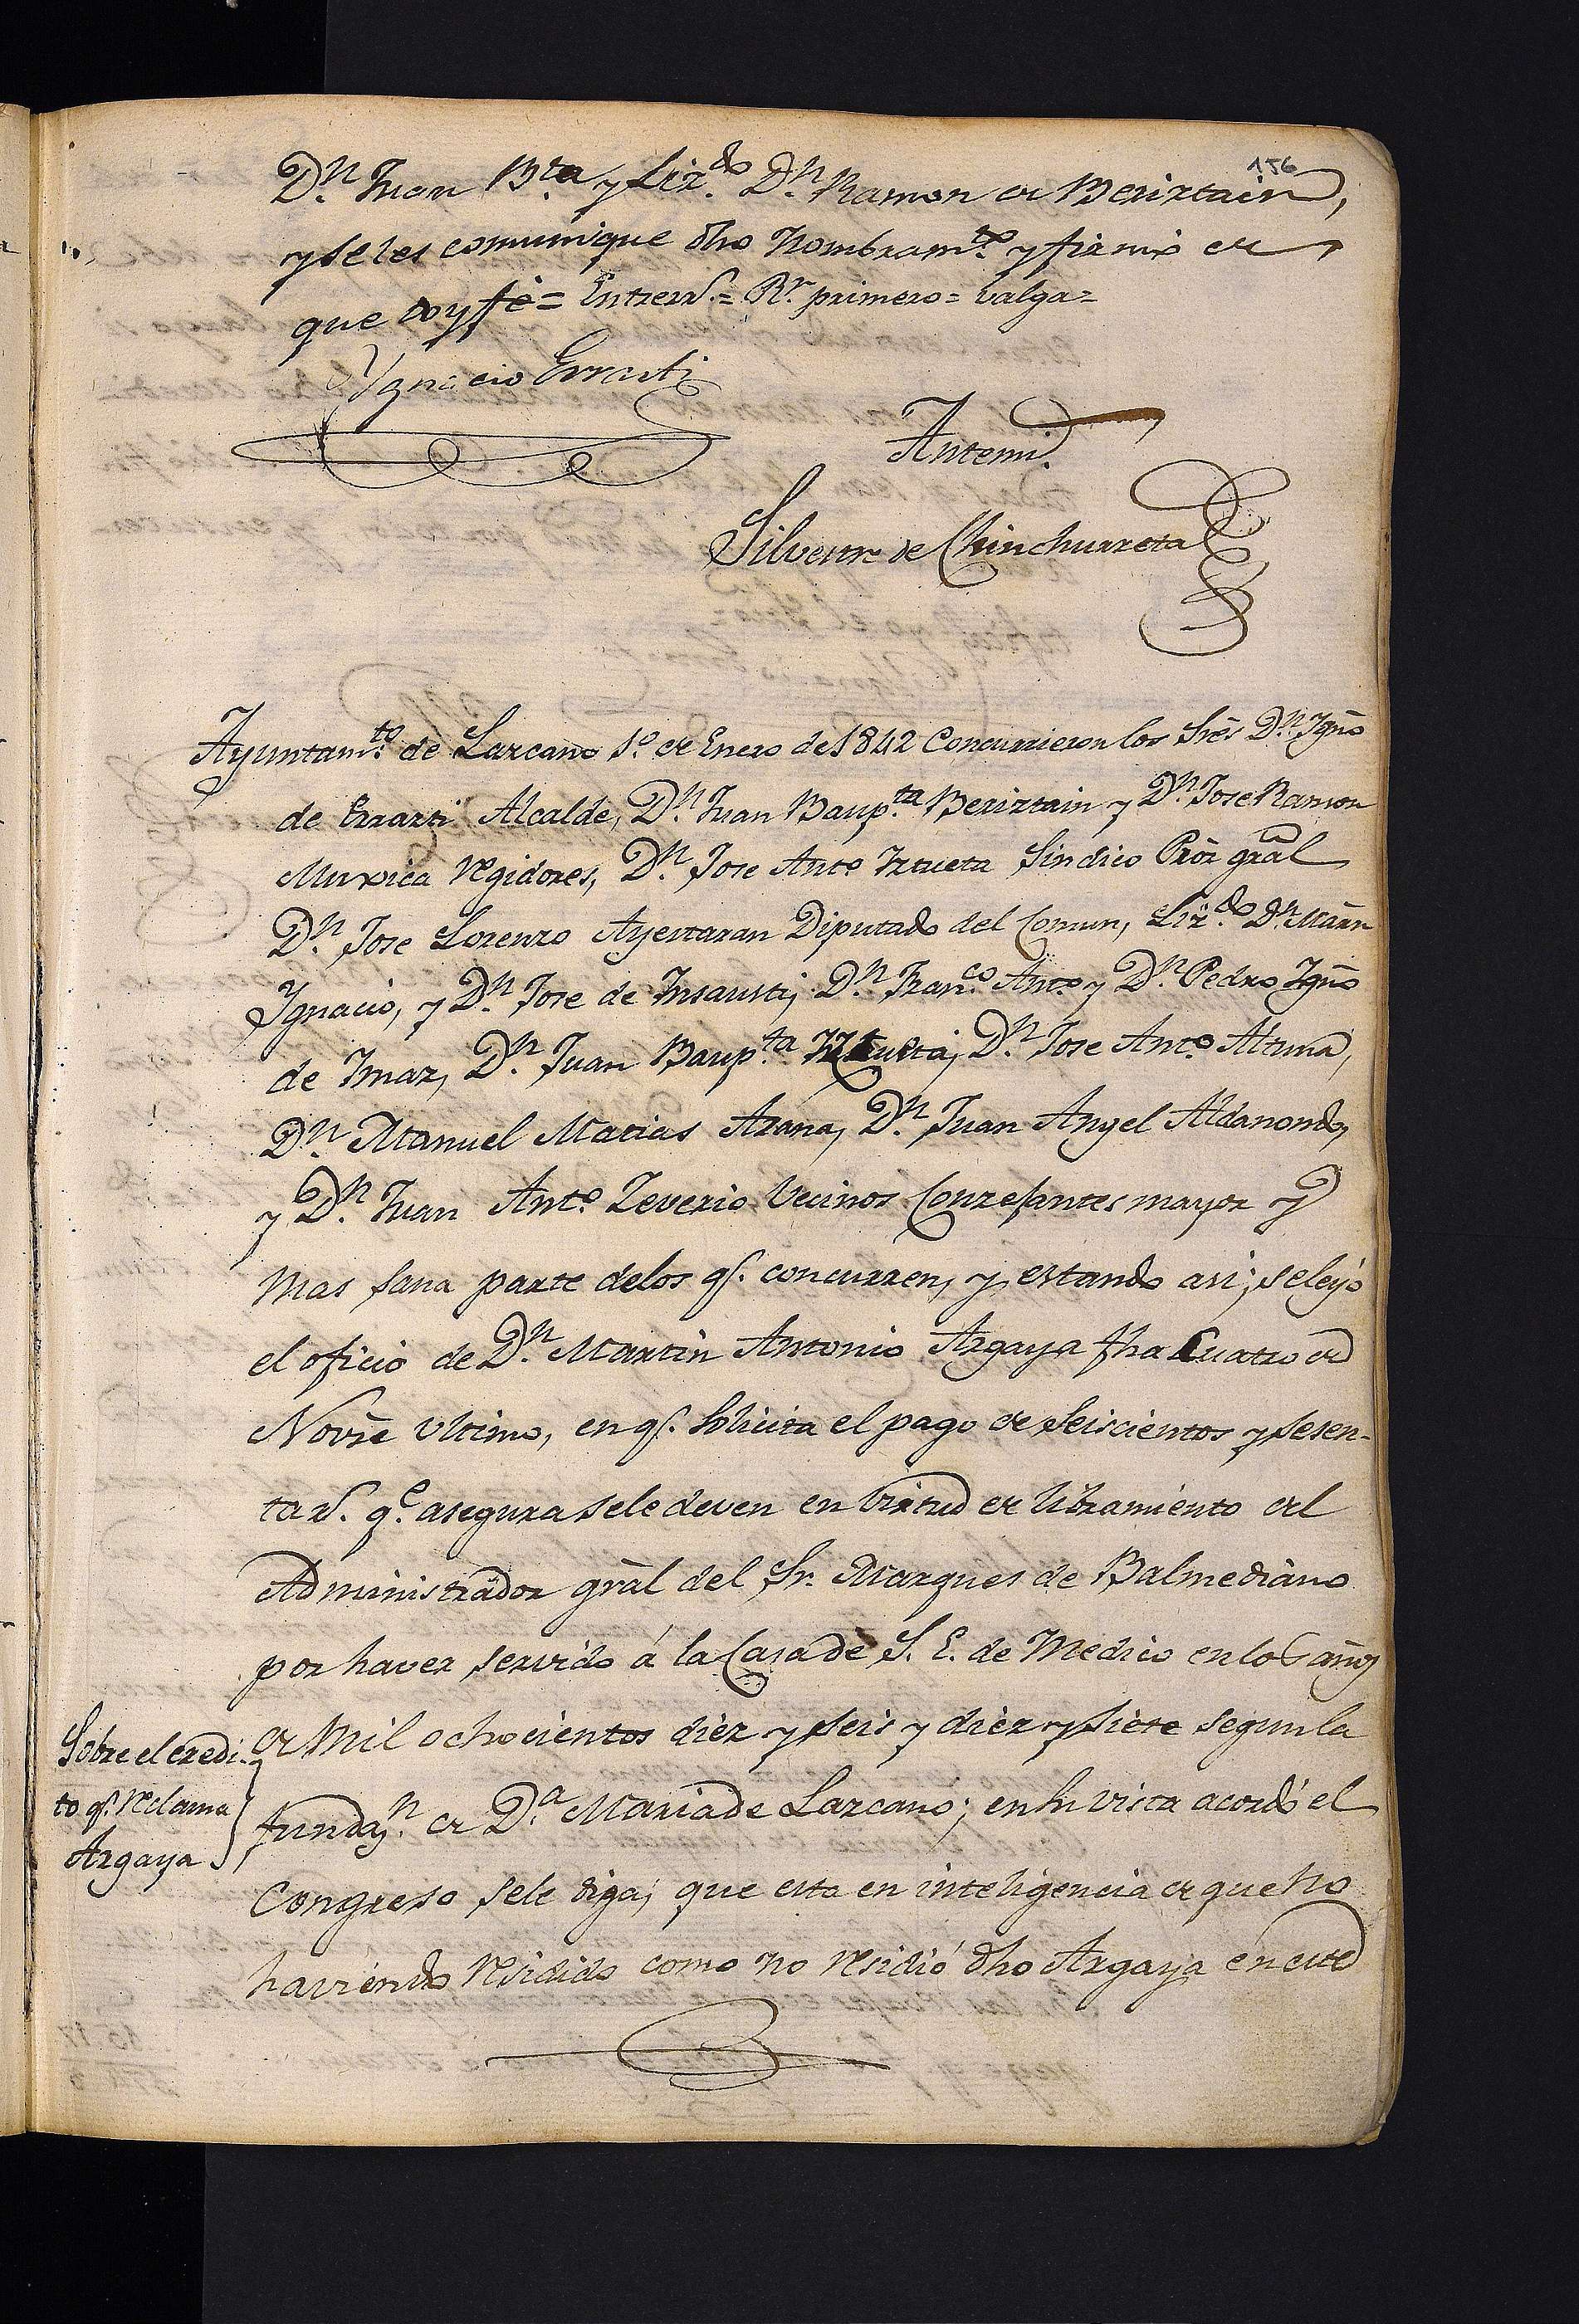 156
Dn. Juan Bta. y Lizdo. Dn. Ramon de Beriztain,
y se les comunique dho Nombramto. y firmó de
que doy fé = Entrerrs. = Rr. primero = valga =
Ygnacio Errasti
Antemi.
Silvestre de Chinchurreta
Ayuntamto. de Lazcano 1.º de Enero de 1842 Concurrieron los Srēs Dn. Ignō
de Errazti Alcalde, Dn. Juan Baupta. Beriztain y Dn. Jose Ramon
Muxica regidores, Dn. Jose Anto. Iztueta Sindico Prōr grāl
Dn. Jose Lorenzo Ayestaran Diputado del Comun, Lizdo. Dn. Mārn
Ygnacio, y Dn. Jose de Insausti, Dn. Franco. Anto. y Dn. Pedro Ignō
de Imaz, Dn. Juan Baupta. Iztueta, Dn. Jose Anto. Altuna,
Dn. Manuel Matias Arana, Dn. Juan Angel Aldanondo,
y Dn. Juan Anto. Zeverio Vecinos Conzejantes mayor y
mas sana parte delos qs. concurren, y estando asi; se leyó
el oficio de Dn. Martin Antonio Argaya fha Cuatro de
Novrē ultimo, en qs. solicita el pago de seiscientos y sesen-
ta rs. qe. asegura sele deven en virtud de libramiento del
Administrador grāl del Sr. Marques de Balmediano
por haver servido á la Casa de S. E. de Medico en los años
de Mil ochocientos diez y seis y diez y siete segun la
Sobre el credi-
to qs. reclama
Argaya
fundazn. de Da. Maria de Lazcano; en su vista acordó el
Congreso sele diga; que esta en inteligencia de que no
haviendo residido como no residió dho Argaya en este